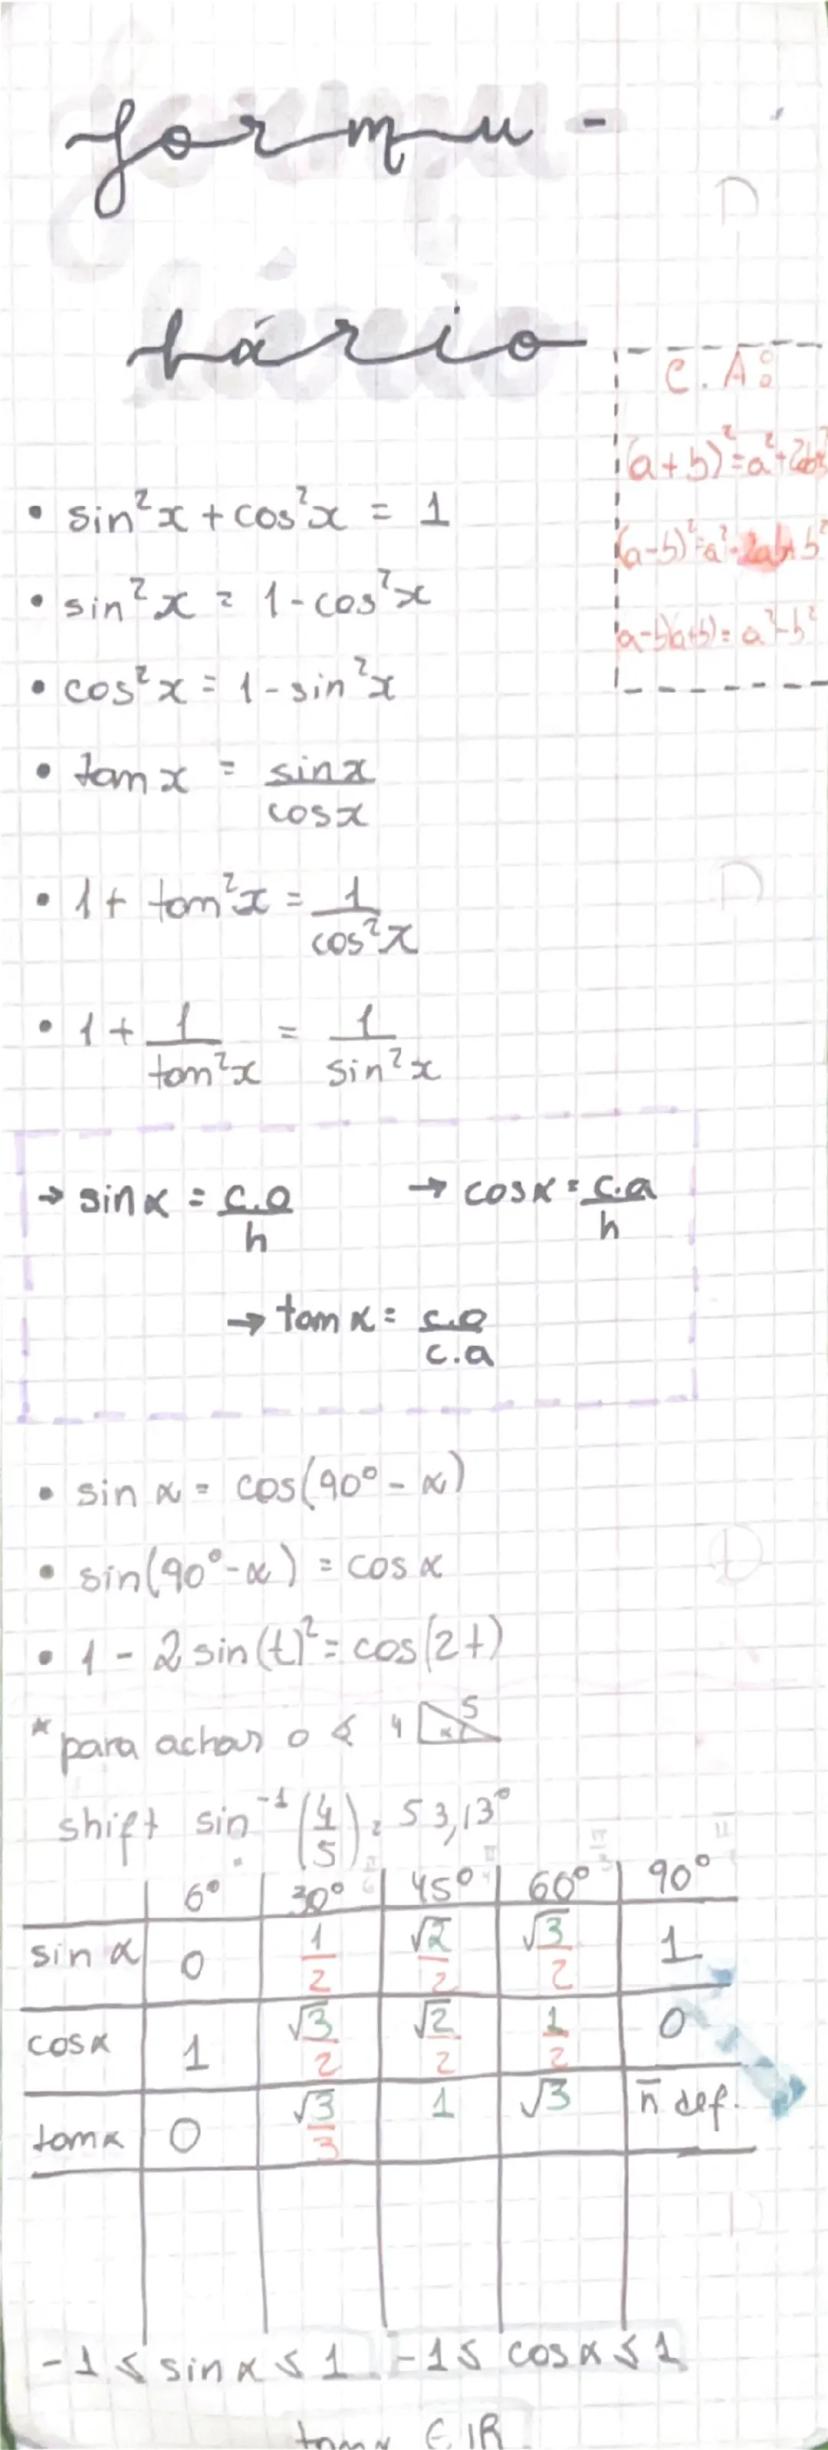 formu-
lário
C.A:
(a+b)²=a²+2ab+b²
(a-b)²=a²-2ab+b²
a-b)(a+b)=a²-b²
• sin²x + cos²x = 1
• sin²x = 1 - cos²x
• cos²x = 1 - sin²x
• tan x = sin x / cos x
• 1 + tan²x = 1 / cos²x
• 1 + 1 / tan²x = 1 / sin²x
→ sin α = c.o / h → cos α = c.a / h
→ tan α = c.o / c.a
• sin α = cos(90° - α)
• sin(90° - α) = cos α
• 1 - 2 sin(t)² = cos(2t)
* para achar o ∢ 4 5 α
shift sin⁻¹(4/5) = 53,13°
π/6 π/4 π/3 π/2
0° 30° 45° 60° 90°
sin α 0 1/2 √2/2 √3/2 1
cos α 1 √3/2 √2/2 1/2 0
tan α 0 √3/3 1 √3 n̄ def.
-1 ≤ sin α ≤ 1 -1 ≤ cos α ≤ 1
tan α ∈ IR